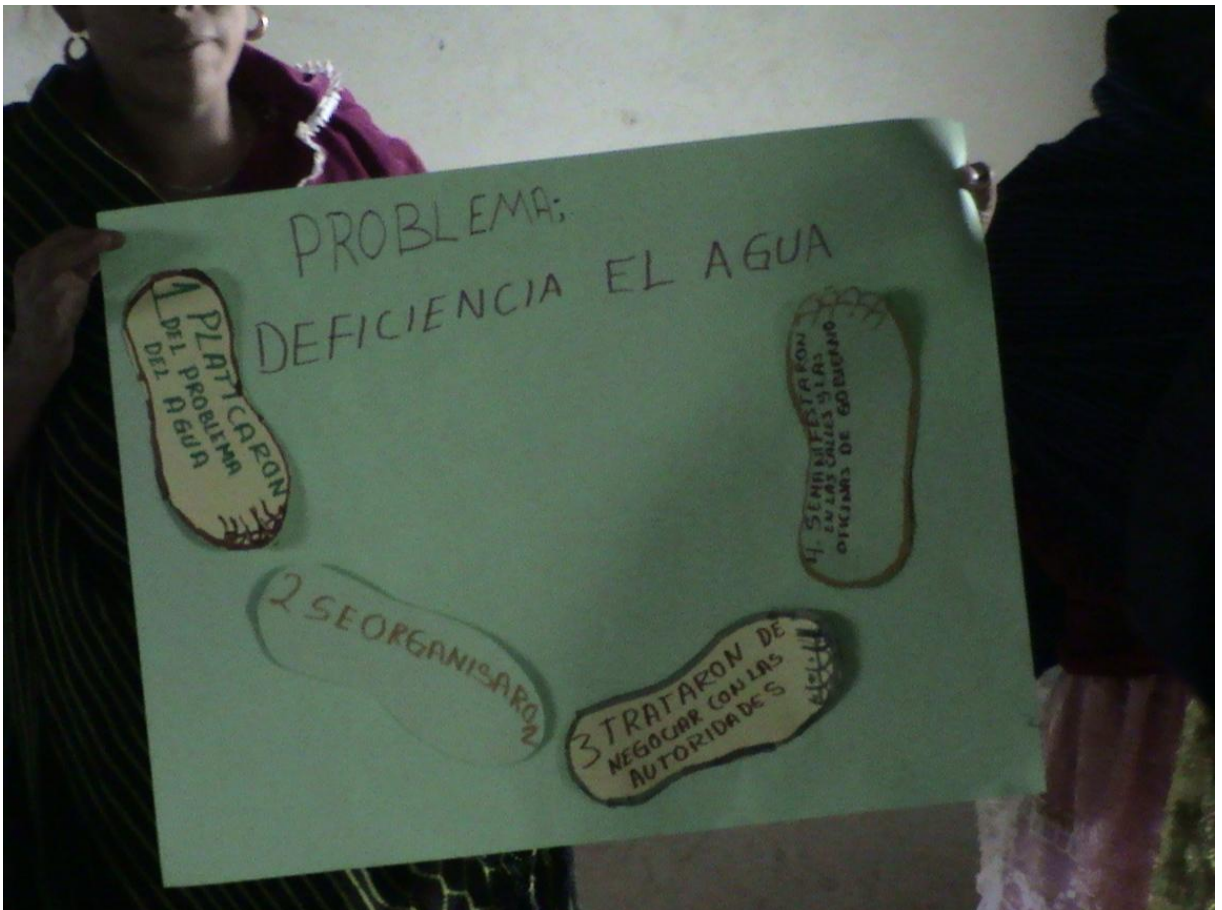 PROBLEMA:
DEFICIENCIA EL AGUA
1 PLATICARON
DEL PROBLEMA
DEL AGUA
2 SEORGANISARON
3 TRATARON DE
NEGOCIAR CON LAS
AUTORIDADES
4. SEMANIFESTARON
EN LAS CALLES Y LAS
OFICINAS DE GOBIERNO